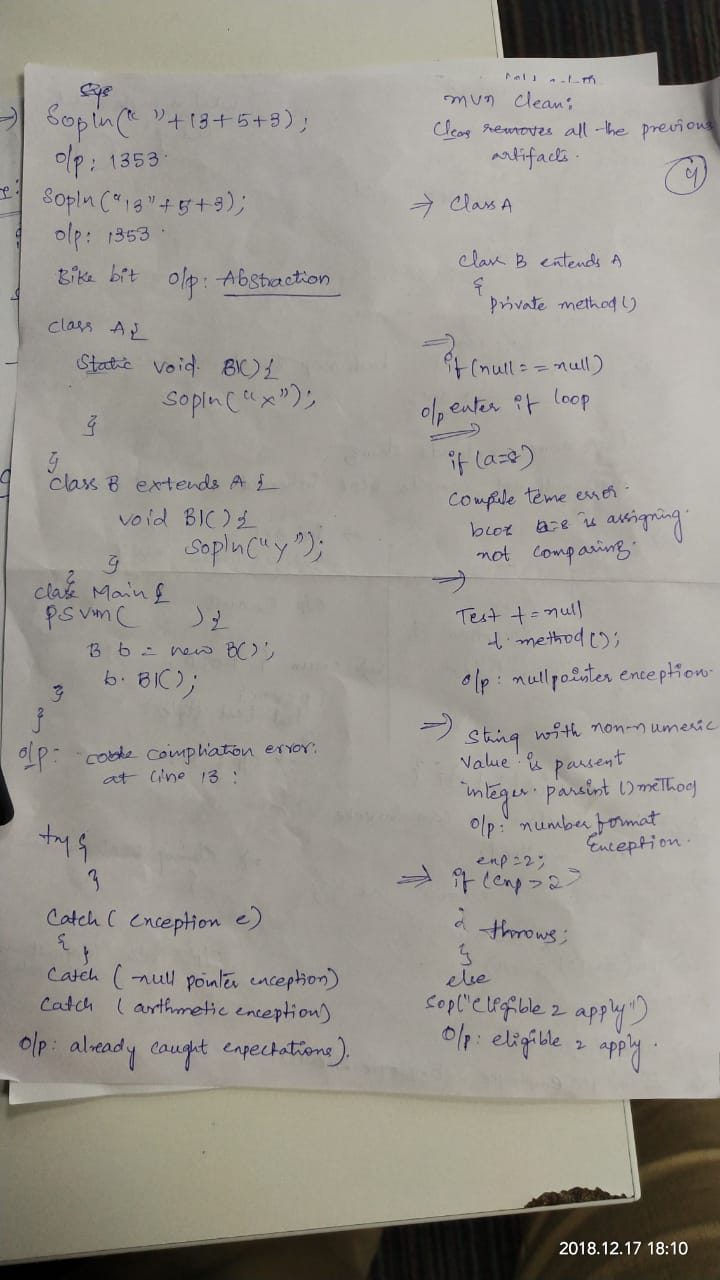 Sys
Sopln(" "+13+5+3);
o/p: 1353
Sopln("13"+5+3);
o/p: 1353
Bike bit o/p: Abstraction
class A{
Static void B1(){
Sopln("x");
}
}
class B extends A {
void B1(){
Sopln("y");
}
}
class Main {
psvm( ){
B b = new B();
b. B1();
}
}
o/p: compliation error.
at line 13 :
try {
}
Catch ( exception e)
{ }
Catch ( null pointer exception)
Catch ( arthmetic exception)
o/p: already caught expectations).
mvn clean:
Clean removes all the previous
artifacts.
4
⇒ Class A
Class B extends A
{
private method()
⇒
if (null = = null)
o/p enter if loop
⇒
if (a=8)
Compile teme error.
bcoz a=8 is assigning.
not comparing.
⇒
Test t = null
t. method();
o/p: nullpointer exception.
⇒ String with non-numeric
value is parsent
integer. parsint () method
o/p: number format
Exception.
exp=2;
⇒ if (exp > 2)
{ throws;
}
else
Sop("eligible 2 apply")
O/p: eligible 2 apply.
2018.12.17 18:10